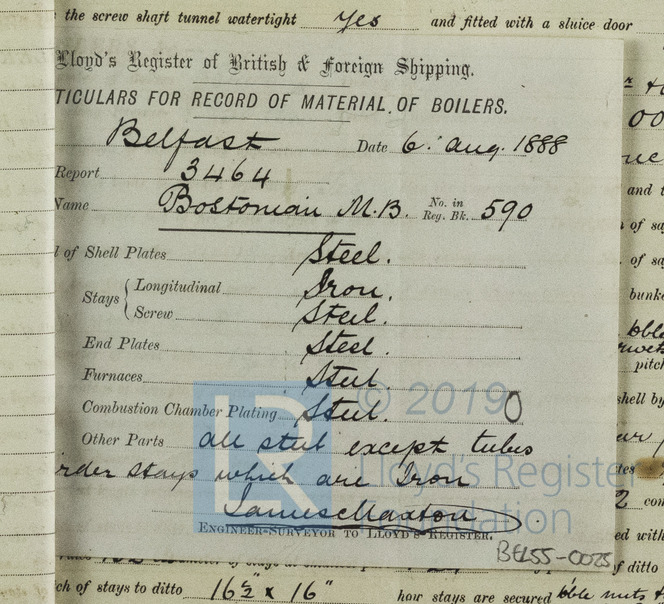 the screw shaft tunnel watertight Yes and fitted with a sluice door
Lloyd's Register of British & Foreign Shipping.
TICULARS FOR RECORD OF MATERIAL OF BOILERS.
Belfast Date 6. Aug. 1888
Report 3464
Name Bostonian M.B. No. in Reg. Bk. 590
l of Shell Plates Steel.
Stays { Longitudinal Iron.
Screw Steel.
End Plates Steel.
Furnaces Steel
Combustion Chamber Plating Steel.
Other Parts all steel except tubes
rder stays which are Iron
James Maxton
ENGINEER-SURVEYOR TO LLOYD'S REGISTER.
BEL55-0025
ch of stays to ditto 16½" x 16" how stays are secured dble nuts &
and t
of sa
of sa
bunke
pitch
shell by
con
ed with
of ditto
LR © 2019
Lloyd's Register
Foundation